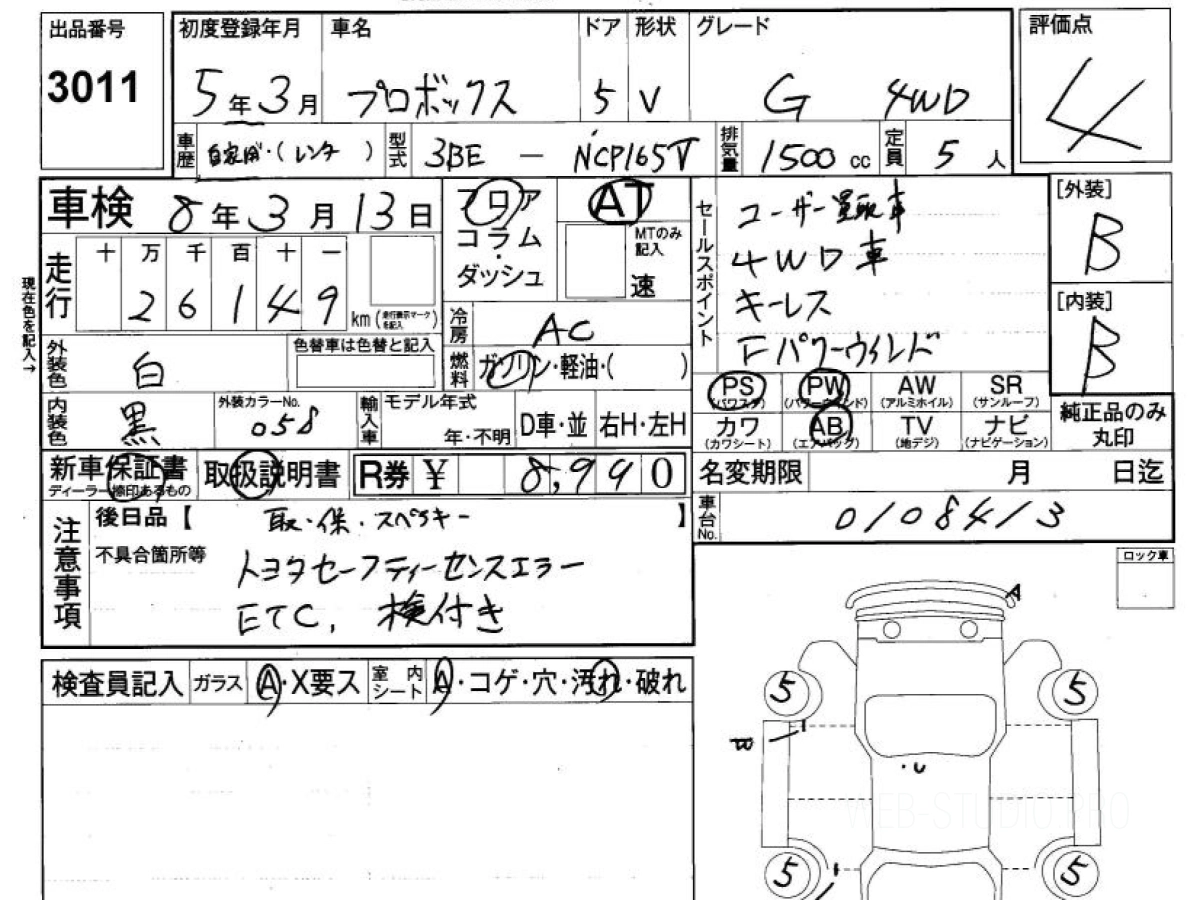 出品番号
3011
初度登録年月
5年3月
車名
プロボックス
ドア
5
形状
V
グレード
G 4WD
評価点
4
車歴
自家用・(レンタ)
型式
3BE - NCP165V
排気量
1500cc
定員
5人
車検
8年3月13日
フロア
コラム
・
ダッシュ
AT
MTのみ
記入
速
セールスポイント
ユーザー買取車
4WD車
キーレス
Fパワーウィンド
[外装]
B
[内装]
B
現在色を記入→
走行
十 万 千 百 十 一
2 6 1 4 9
km (走行表示マークを記入)
冷房
AC
燃料
ガソリン・軽油・( )
外装色
白
色替車は色替と記入
内装色
黒
外装カラーNo.
058
輸入車
モデル年式
年・不明
D車・並
右H・左H
PS
(パワステ)
PW
(パワーウィンド)
AW
(アルミホイル)
SR
(サンルーフ)
カワ
(カワシート)
AB
(エアバッグ)
TV
(地デジ)
ナビ
(ナビゲーション)
純正品のみ
丸印
新車保証書
ディーラー捺印あるもの
取扱説明書
R券 ¥ 8,990
名変期限 月 日迄
車台No.
0108413
注意事項
後日品【 取・保・スペアキー 】
不具合箇所等
トヨタセーフティーセンスエラー
ETC, 検付き
ロック車
検査員記入
ガラス
A・X要ス
室内シート
A・コゲ・穴・汚れ・破れ
A
5
5
・U
WEB-STUDIO.PRO
5
5